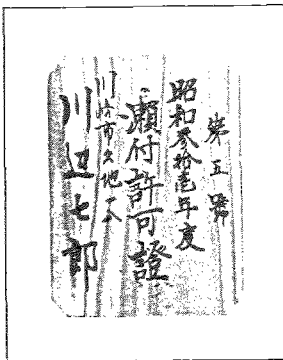 第五號
昭和参拾壱年度
瀬付許可證
川崎市久地
川辺七郎